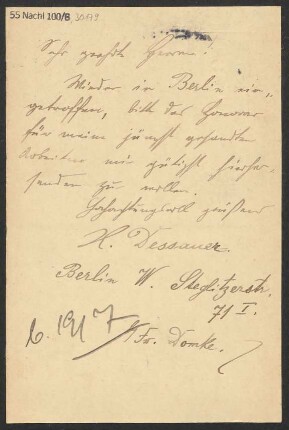 55 Nachl 100/B,30,19
Sehr geehrte Herren!
Wieder in Berlin ein-
getroffen, bitte das Honorar
für meine jüngst gesandten
Arbeiten mir gütigst hierher
senden zu wollen.
Hochachtungsvoll grüßend
H. Dessauer
Berlin W. Steglitzerstr.
71 I.
b. Fr. Domke.